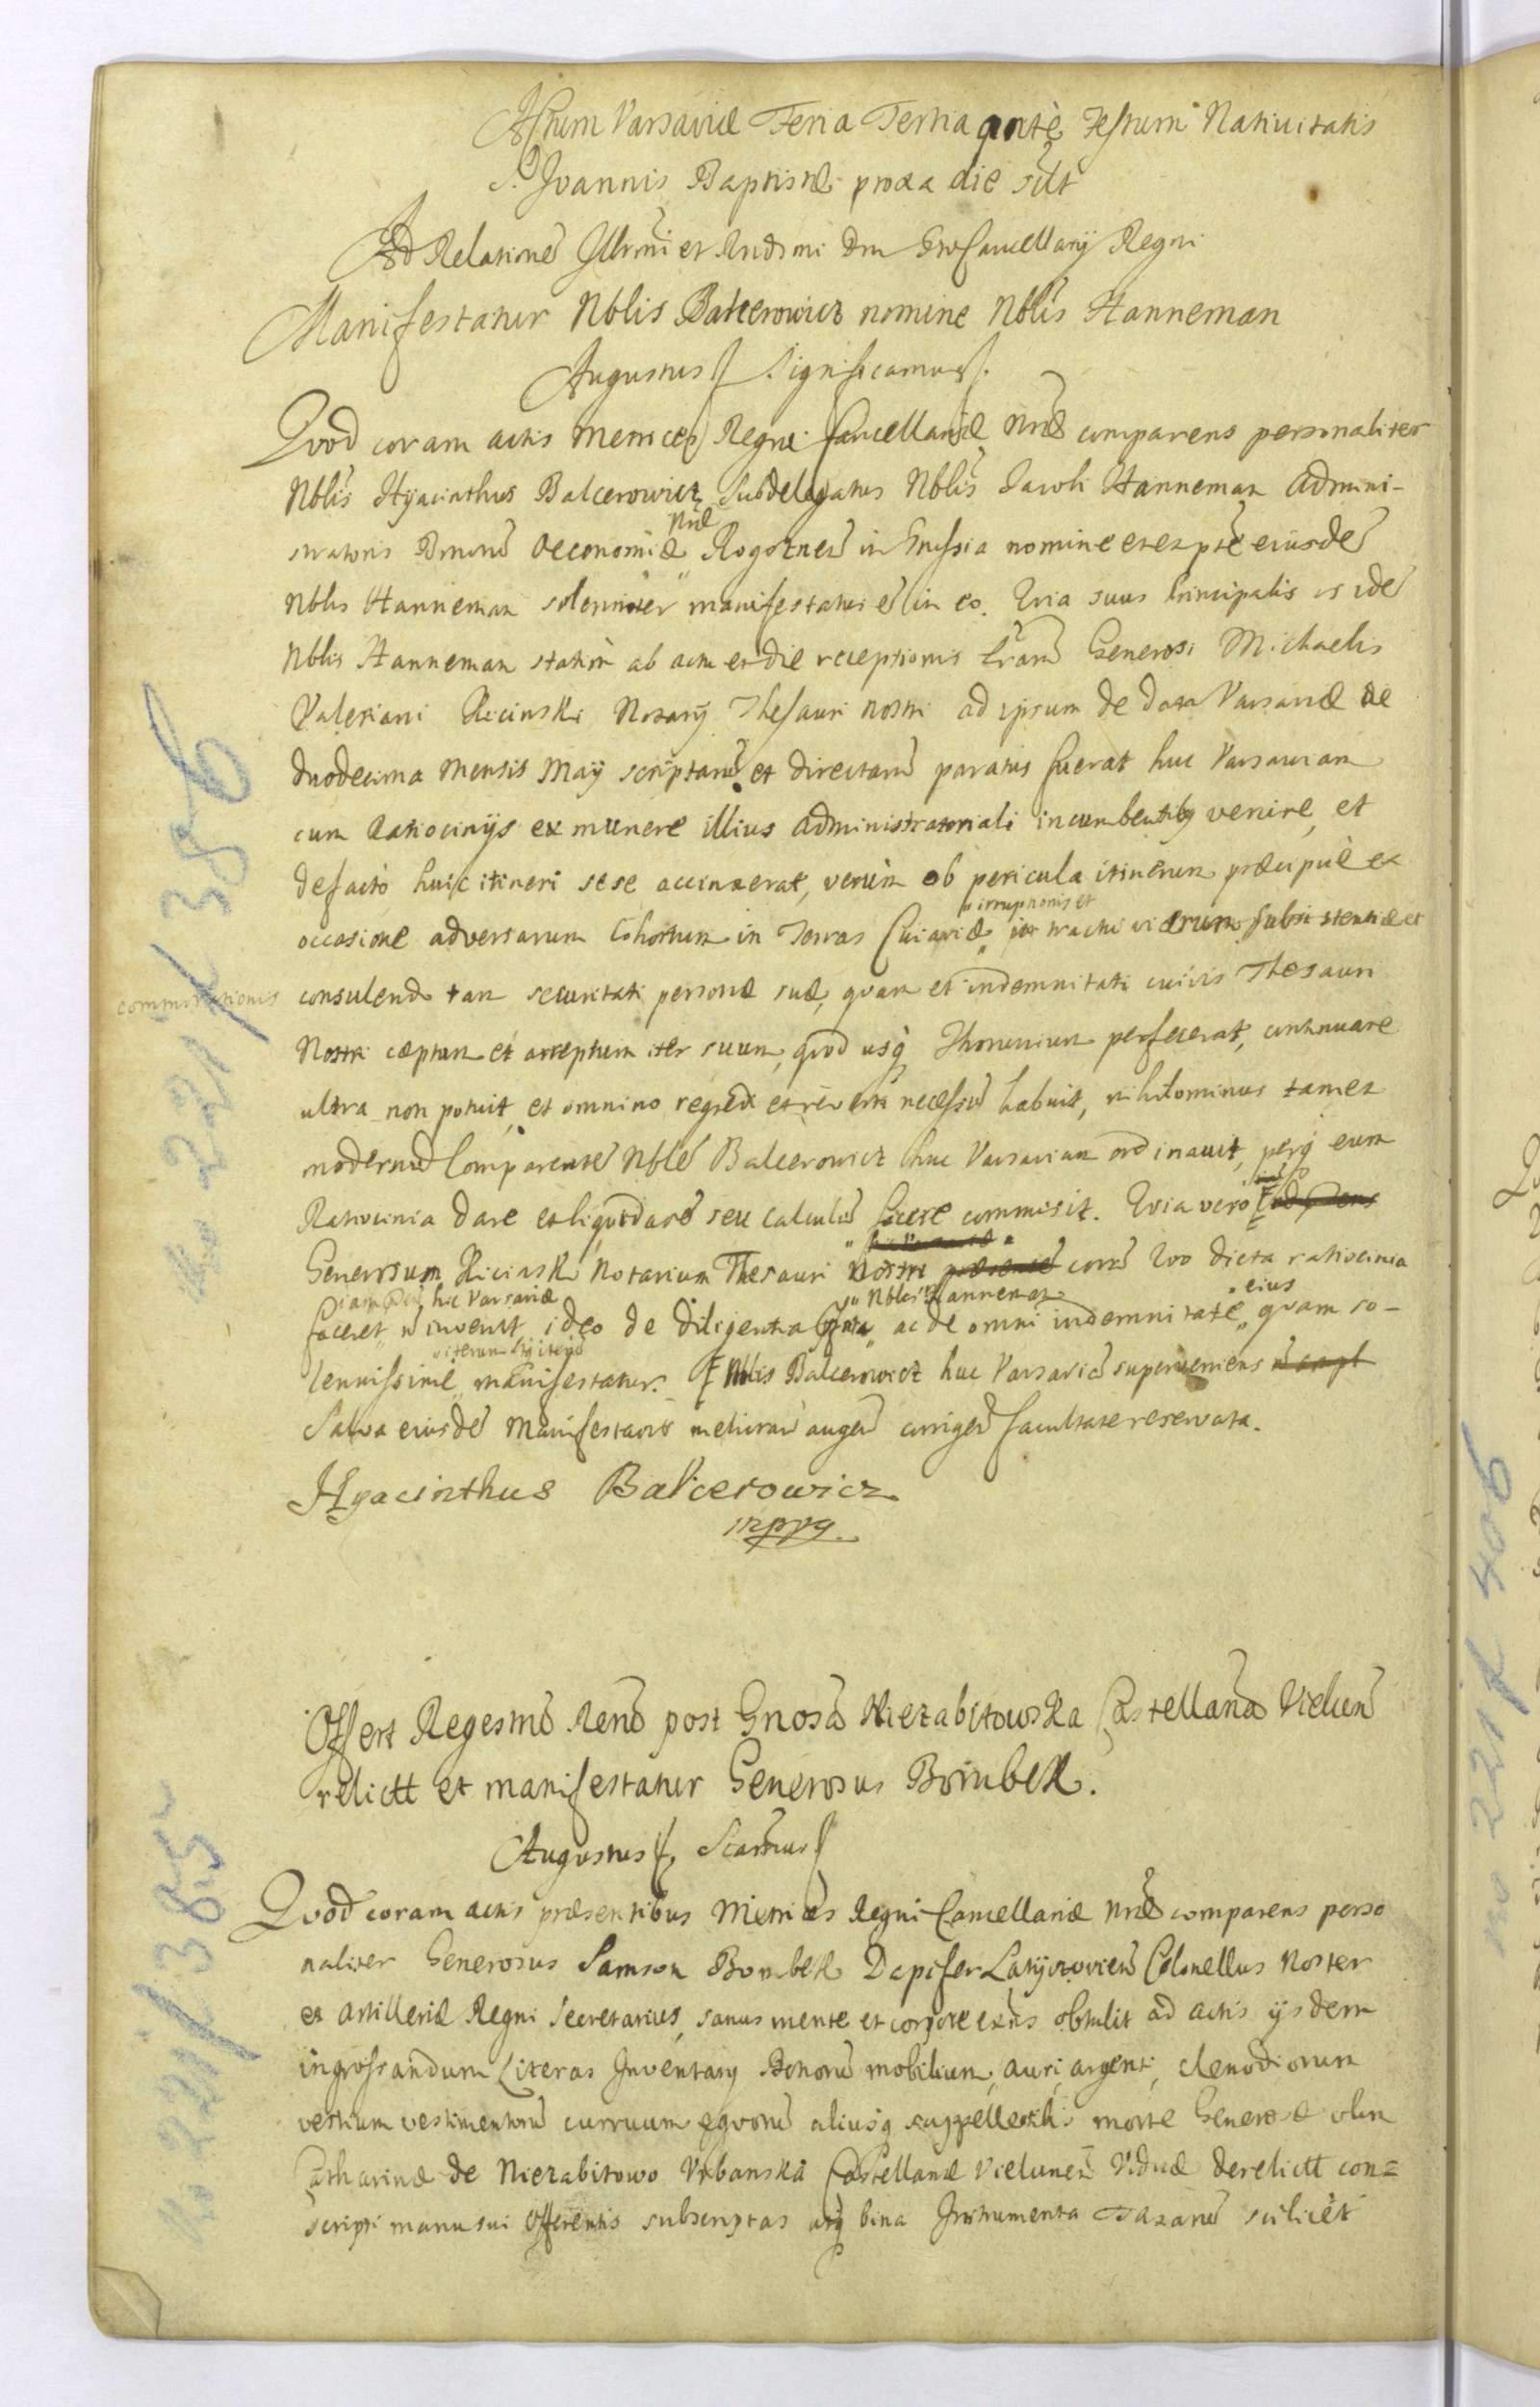 Actum Varsaviæ Feria Tertia ante Festum Nativitatis
S. Joannis Baptistæ proxa die
Ad Relatione Illrmi et Rndsmi Dni Cancellarij Regni
Manifestatur Nblis Balcerowicz nomine Nblis Hanneman
Augustus Significamus
Quod coram actis Metrices Regni Cancellariæ Nræ comparens personaliter
Nblis Hyacinthus Balcerowicz Subdelegatus Nblis Jacobi Hanneman Admini-
stratoris Bonoru Oeconomiæ Nræ Rogoznen in Prussia nomine et ex pte eiusde
Nblis Hanneman solenniter manifestatus e in eo. Quia suus Principalis is ide
Nblis Hanneman statim ab actu et die receptionis Lraru Generosi Michaelis
Valeriani Kicinski Notarij Thesauri nostri ad ipsum de data Varsaviæ de
duodecima Mensis Maij scriptaru et directaru paratus fuerat huc Varsaviam
cum Ratiocinijs ex munere illius administratoriali incumbentibq venire, et
defacto huic itineri sese accinxerat, verum ob pericula itinerum præcipuè ex
occasione adversarum Cohortum in Terras Cuiaviæ irruptionis et tractu viarum subsistentiæ et
commorationis
consulendo tam securitati personæ suæ, quam et indemnitati cuivis Thesauri
Nostri cæptum et arreptum iter suum, quod usq Thorunium perfecerat, continuare
ultra non potuit, et omnino regredi et reverti necessu habuit, nihilominus tamen
modernu Comparente Nble Balcerowicz huc Varsaviam ordinavit, perq eum
Ratiocinia dare et liquidare seu calculu facere commisit. Quia vero
Generosum Kicinski Notarium Thesauri Nostri cora quo dicta ratiocinia
faceret iam hic Varsaviæ n invenit ideo de diligentia Nblis Hanneman ac de omni indemnitate eius quam so-
lennissime iterum iterq manifestatur. Nblis Balcerowicz huc Varsavia superveniens
Salva eiusde Manifestaois melioran augen corrigen facultate reservata.
Hyacinthus Balcerowicz
mppa
Offert Regestru Reru post Gnosa Niezabitowska Castellana Vielun
relictt et manifestatur Generosus Brimbek.
Augustus Scamus
Quod coram actis præsentibus Metrices Regni Cancellariæ Nræ comparens perso
naliter Generosus Samson Bombek Dapifer Latyczovien Colonellus Noster
et Artilleriæ Regni Secretarius, sanus mente et corpore exns obtulit ad actis ijsdem
ingrossandum Literas Inventarij Bonoru mobilium, auri, argenti, clenodiorum
vestium vestimentoru curruum equoru aliusq suppellectilis morte Generosæ olim
Catharinæ de Niezabitowo Urbanska Castellanæ Vielunen Viduæ derelictt con=
scripti manu sui Offerentis subscriptas atq bina Instrumenta Taxaru scilicèt
no 221 f 386
no 221 f 385
no 221 f 406